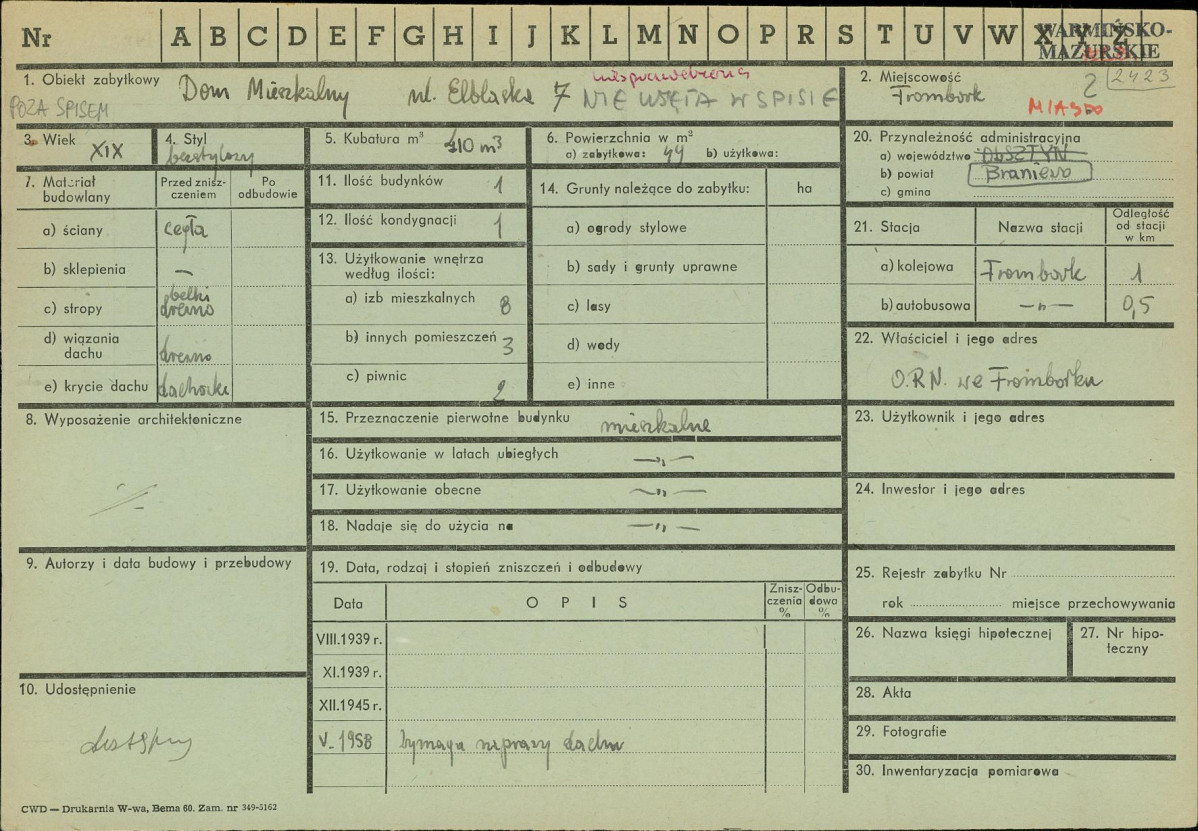 Nr A B C D E F G H I J K L M N O P R S T U V W X Y Z
WARMIŃSKO-
MAZURSKIE
1. Obiekt zabytkowy Dom Mieszkalny ul. Elbląska 7 NIE UJĘTA W SPISIE
POZA SPISEM
2. Miejscowość 2 2423
Frombork
MIASTO
3. Wiek XIX
4. Styl
bezstylowy
5. Kubatura m³ 410 m³
6. Powierzchnia w m²
a) zabytkowa: 44 b) użytkowa:
7. Materiał budowlany
Przed znisz-
czeniem
Po
odbudowie
a) ściany cegła
b) sklepienia —
c) stropy belki
drewno
d) wiązania
dachu drewno
e) krycie dachu dachówki
8. Wyposażenie architektoniczne
9. Autorzy i data budowy i przebudowy
10. Udostępnienie
dostępny
11. Ilość budynków 1
12. Ilość kondygnacji 1
13. Użytkowanie wnętrza
według ilości:
a) izb mieszkalnych 8
b) innych pomieszczeń 3
c) piwnic 2
14. Grunty należące do zabytku: ha
a) ogrody stylowe
b) sady i grunty uprawne
c) lasy
d) wody
e) inne
15. Przeznaczenie pierwotne budynku mieszkalne
16. Użytkowanie w latach ubiegłych —„—
17. Użytkowanie obecne —„—
18. Nadaje się do użycia na —„—
19. Data, rodzaj i stopień zniszczeń i odbudowy
Data OPIS
Znisz-
czenia
%
Odbu-
dowa
%
VIII.1939 r.
XI.1939 r.
XII.1945 r.
V. 1958 wymaga naprawy dachu
20. Przynależność administracyjna
a) województwo OLSZTYN
b) powiat Braniewo
c) gmina
21. Stacja Nazwa stacji
Odległość
od stacji
w km
a) kolejowa Frombork 1
b) autobusowa —„— 0,5
22. Właściciel i jego adres
O.R.N. we Fromborku
23. Użytkownik i jego adres
24. Inwestor i jego adres
25. Rejestr zabytku Nr
rok miejsce przechowywania
26. Nazwa księgi hipotecznej
27. Nr hipo-
teczny
28. Akta
29. Fotografie
30. Inwentaryzacja pomiarowa
CWD — Drukarnia W-wa, Bema 60. Zam. nr 349-5162